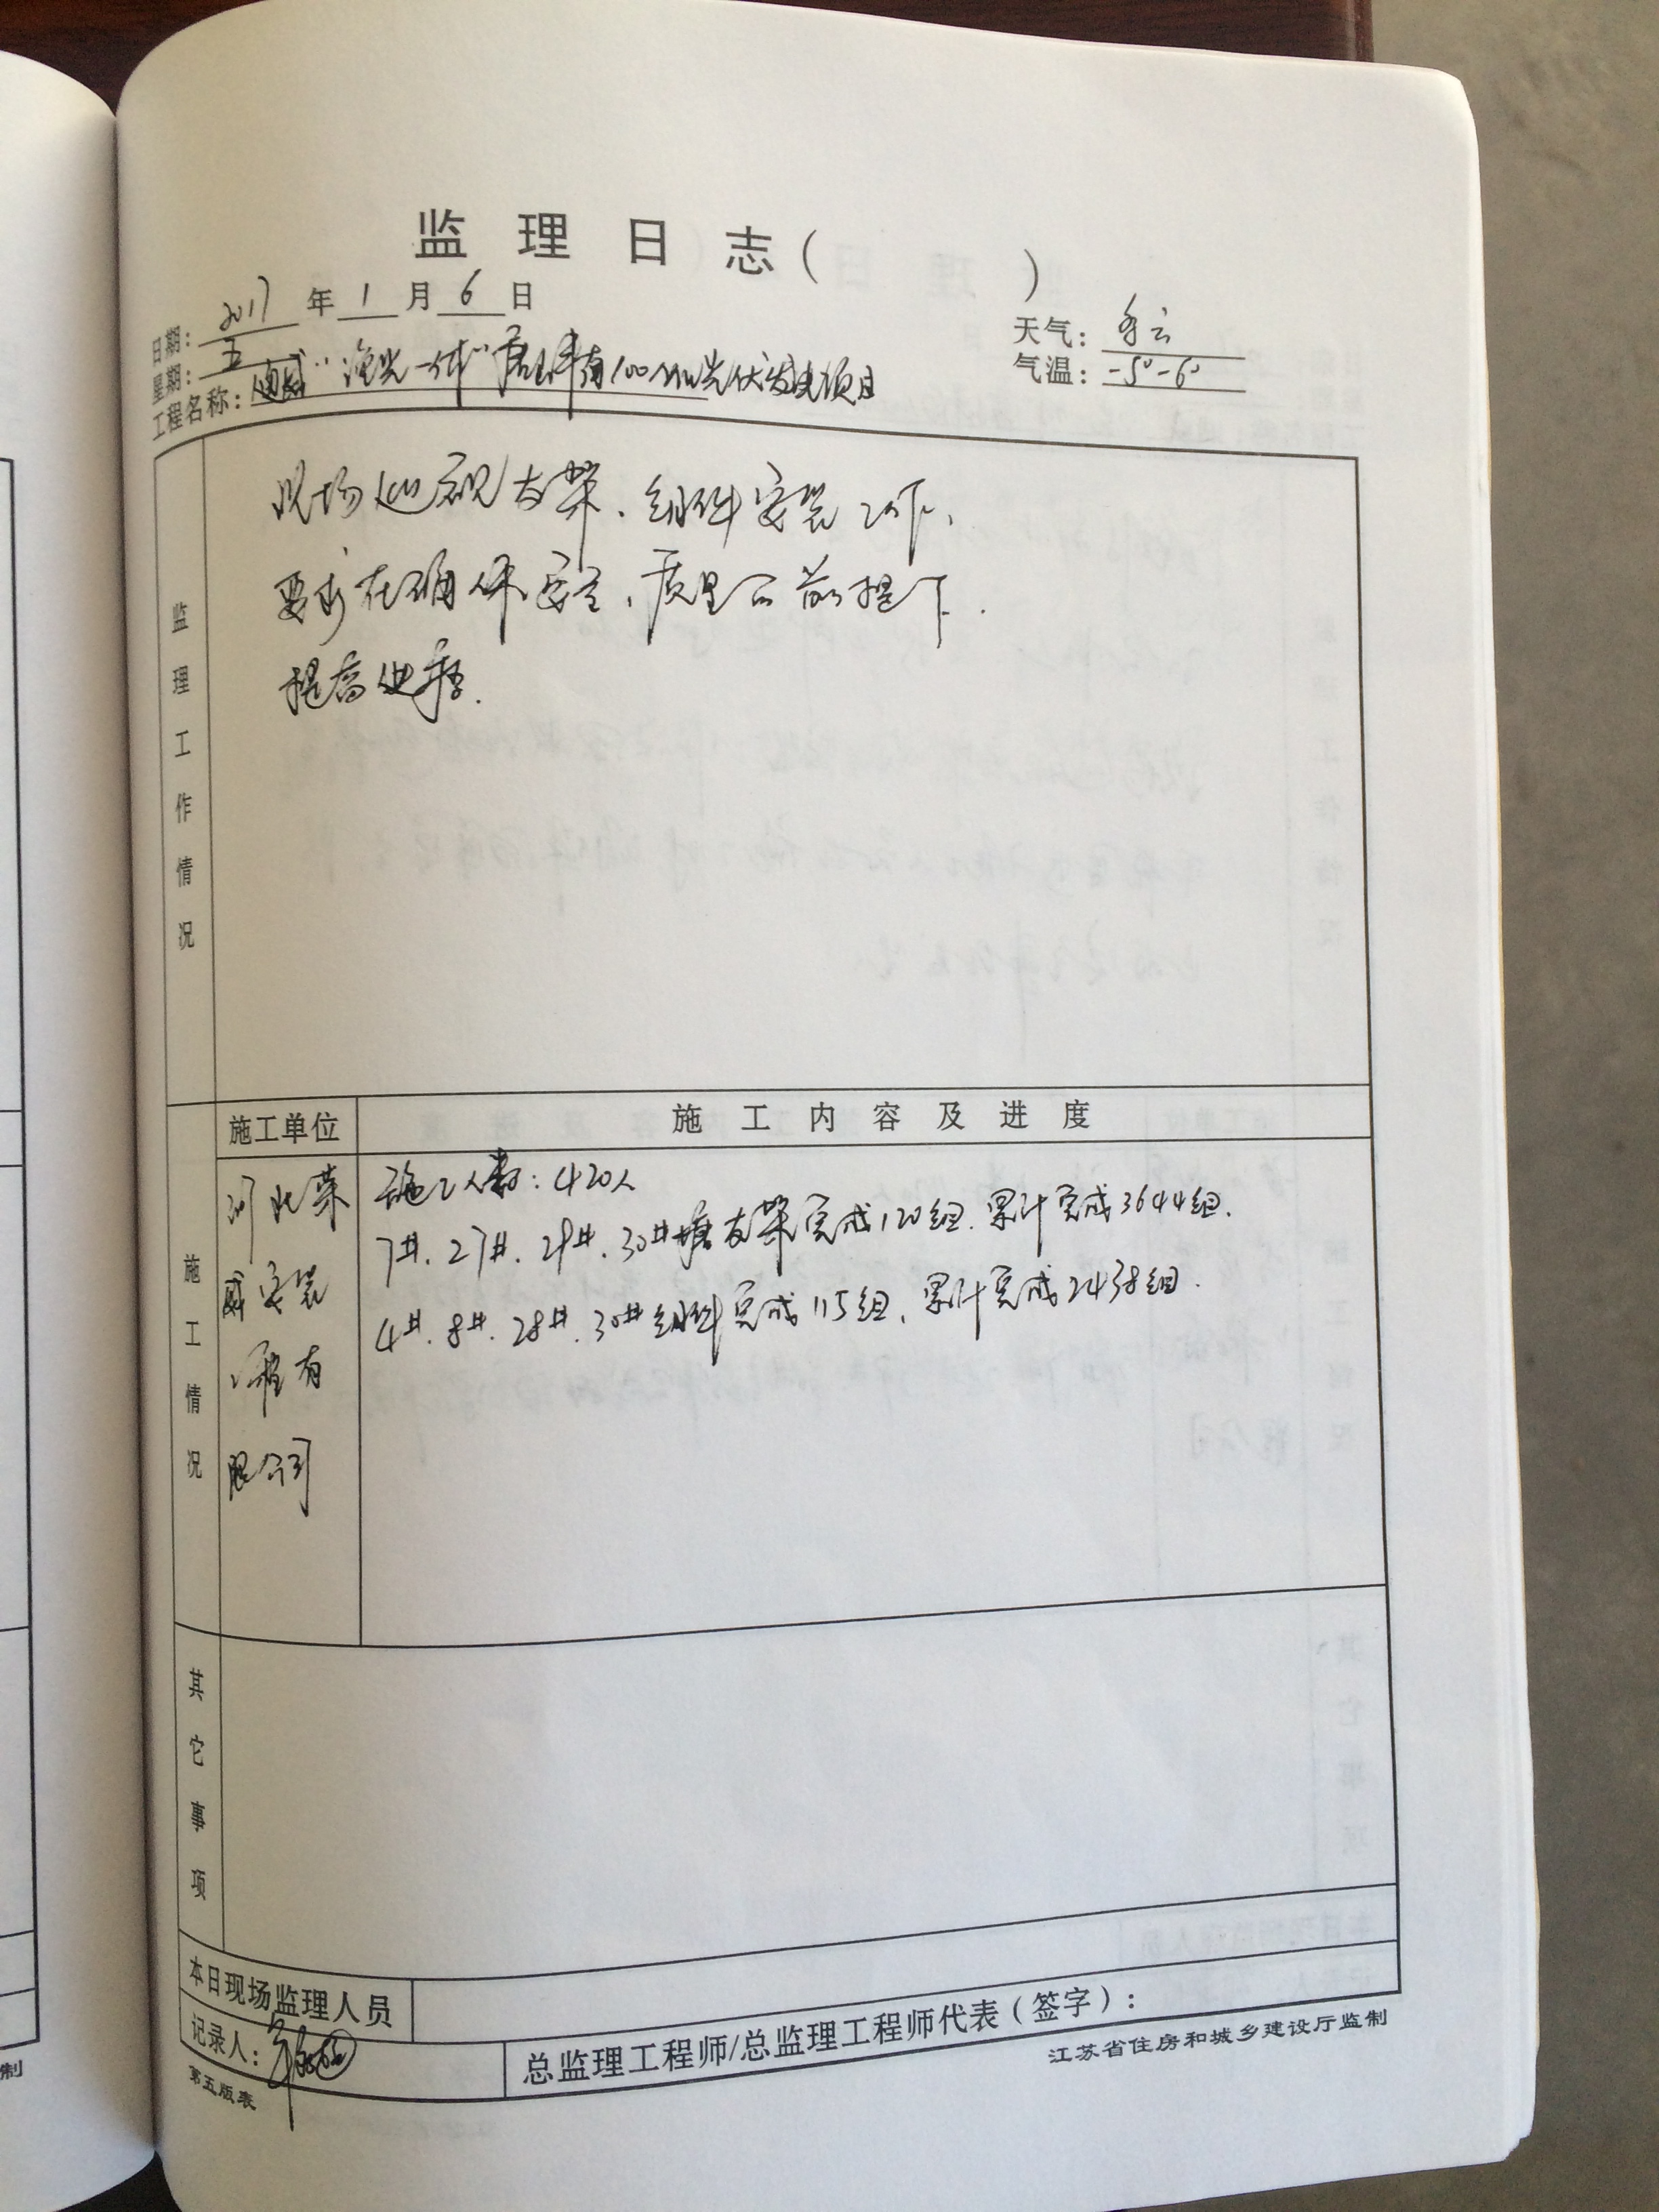 监理日志( )
日期: 2017 年 1 月 6 日
天气: 多云
星期: 五
气温: -5°-6°
工程名称: 通威"渔光一体" 南100MW光伏发电项目
监理工作情况
现场巡视支架、组件安装工作,
要求在确保安全、质量的前提下.
提高进度.
施工单位
施工内容及进度
施工情况
河北荣
威安装
工程有
限公司
施工人数:420人
7#、27#、29#、30#塘支架完成120组.累计完成3644组.
4#、8#、28#、30#组件完成115组、累计完成2438组.
其它事项
本日现场监理人员
记录人:
总监理工程师/总监理工程师代表(签字):
第五版表
江苏省住房和城乡建设厅监制
制